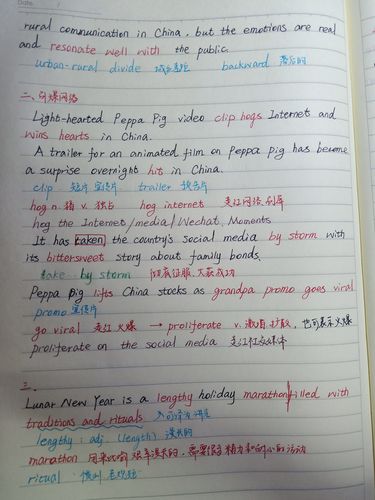 Date
rural communication in China, but the emotions are real
and resonate well with the public.
urban-rural divide 城乡差距 backward 落后的
二、引爆网络
Light-hearted Peppa Pig video clip hogs Internet and
wins hearts in China.
A trailer for an animated film on Peppa pig has become
a surprise overnight hit in China.
clip 短片 宣传片 trailer 预告片
hog n. 猪 v. 独占 hog internet 走红网络,刷屏
hog the Internet/media/Wechat Moments
It has taken the country's social media by storm with
its bittersweet story about family bonds.
take by storm 强势征服,大获成功
Peppa pig lifts China stocks as grandpa promo goes viral
promo 宣传片
go viral 走红 火爆 → proliferate v. 激增 扩散, 也可表示火爆
proliferate on the social media 走红社交媒体
三、
Lunar New Year is a lengthy holiday marathon filled with
traditions and rituals
lengthy: adj (length) 漫长的
marathon 用来比喻 艰辛漫长的, 需要很多精力和耐心的活动
ritual